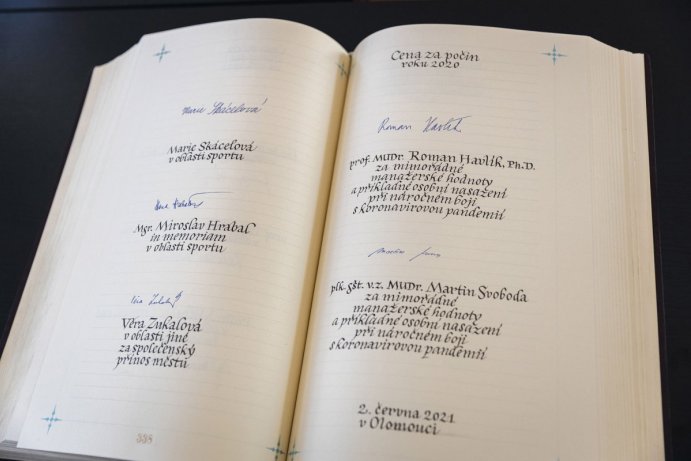 Marie Skácelová
Marie Skácelová
v oblasti sportu
Mgr. Miroslav Hrabal
in memoriam
v oblasti sportu
Věra Zukalová
v oblasti jiné
za společenský
přínos městu
338
Cena za počin
roku 2020
Roman Havlík
prof. MUDr. Roman Havlík, Ph.D.
za mimořádné
manažerské hodnoty
a příkladné osobní nasazení
při náročném boji
s koronavirovou pandemií
plk. gšt. v.z. MUDr. Martin Svoboda
za mimořádné
manažerské hodnoty
a příkladné osobní nasazení
při náročném boji
s koronavirovou pandemií
2. června 2021
v Olomouci